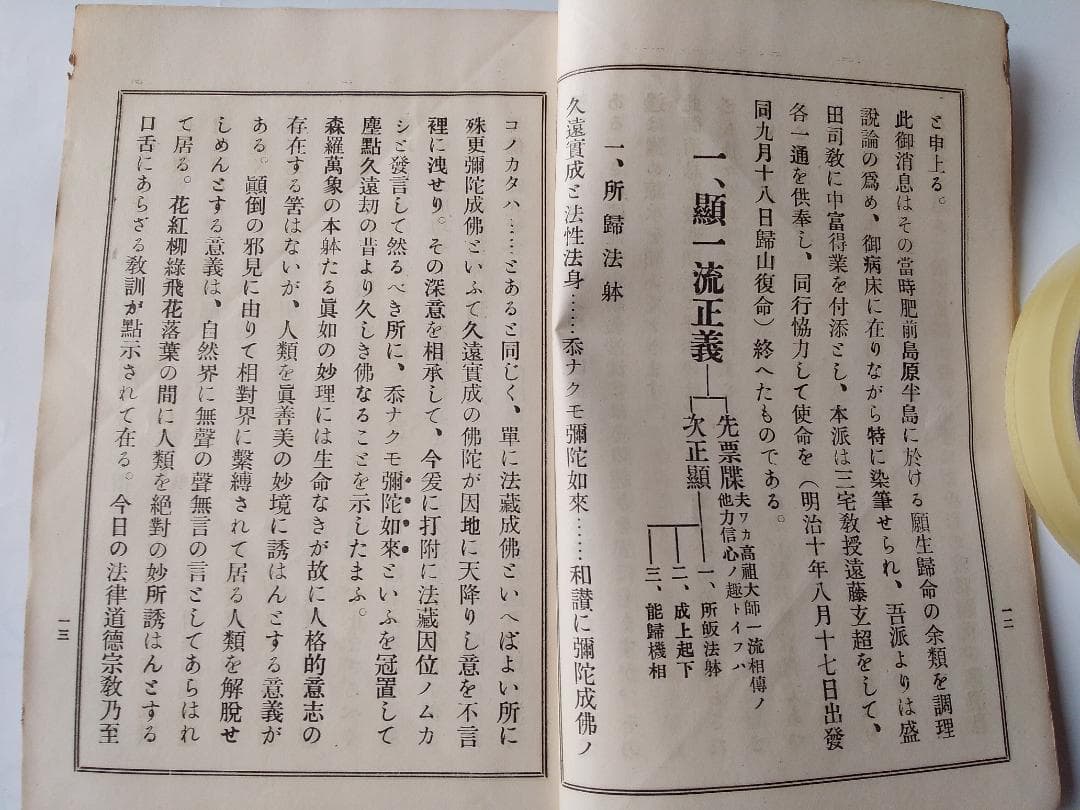 と申上る。
此御消息はその當時肥前島原半島に於ける願生歸命の余類を調理
說諭の爲め、御病床に在りながら特に染筆せられ、吾派よりは盛
田司敎に中富得業を付添とし、本派は三宅敎授遠藤玄超をして、
各一通を供奉し、同行協力して使命を（明治十年八月十七日出發
同九月十八日歸山復命）終へたものである。
一、顯一流正義
先票牒
夫ワカ高祖大師一流相傳ノ
他力信心ノ趣トイフハ
次正顯
一、所皈法躰
二、成上起下
三、能歸機相
一、所歸法躰
久遠實成と法性法身……忝ナクモ彌陀如來……和讃に彌陀成佛ノ
一二
コノカタハ……とあると同じく、單に法藏成佛といへばよい所に
殊更彌陀成佛といふて久遠實成の佛陀が因地に天降りし意を不言
裡に洩せり。その深意を相承して、今爰に打附に法藏因位ノムカ
シと發言して然るべき所に、忝ナクモ彌陀如來といふを冠置して
塵點久遠劫の昔より久しき佛なることを示したまふ。
森羅萬象の本躰たる眞如の妙理には生命なきが故に人格的意志の
存在する筈はないが、人類を眞善美の妙境に誘はんとする意義が
ある。顚倒の邪見に由りて相對界に繫縛されて居る人類を解脫せ
しめんとする意義は、自然界に無聲の聲無言の言としてあらはれ
て居る。花紅柳綠飛花落葉の間に人類を絕對の妙所誘はんとする
口舌にあらざる敎訓が點示されて在る。今日の法律道德宗敎乃至
一三